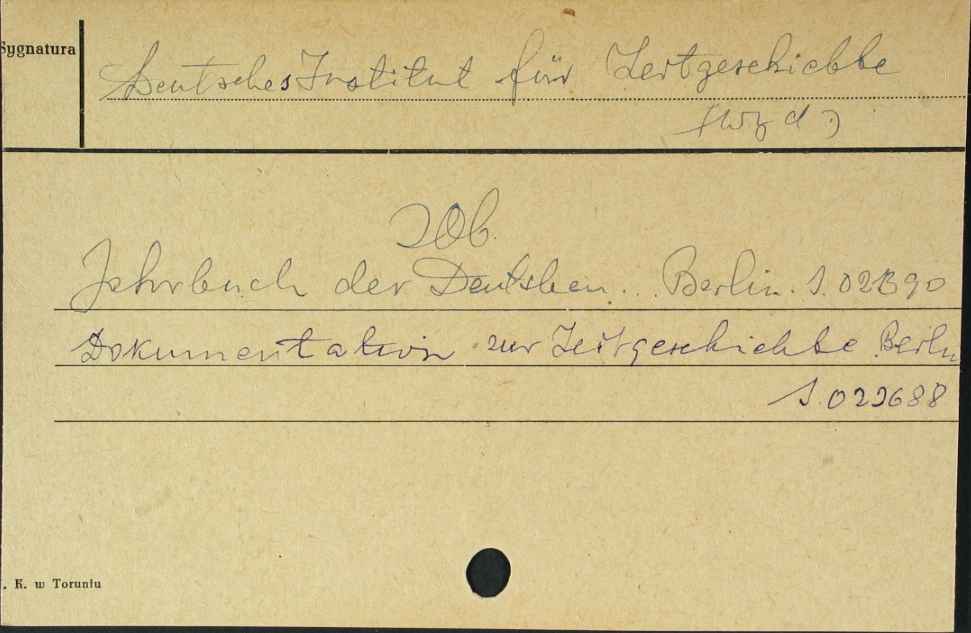 Sygnatura
Deutsches Institut für Zeitgeschichte
(wyd.)
Zob.
Jahrbuch der Deutschen... Berlin. S. 02
Dokumentation zur Zeitgeschichte Berlin
S. 029688
. K. w Toruniu